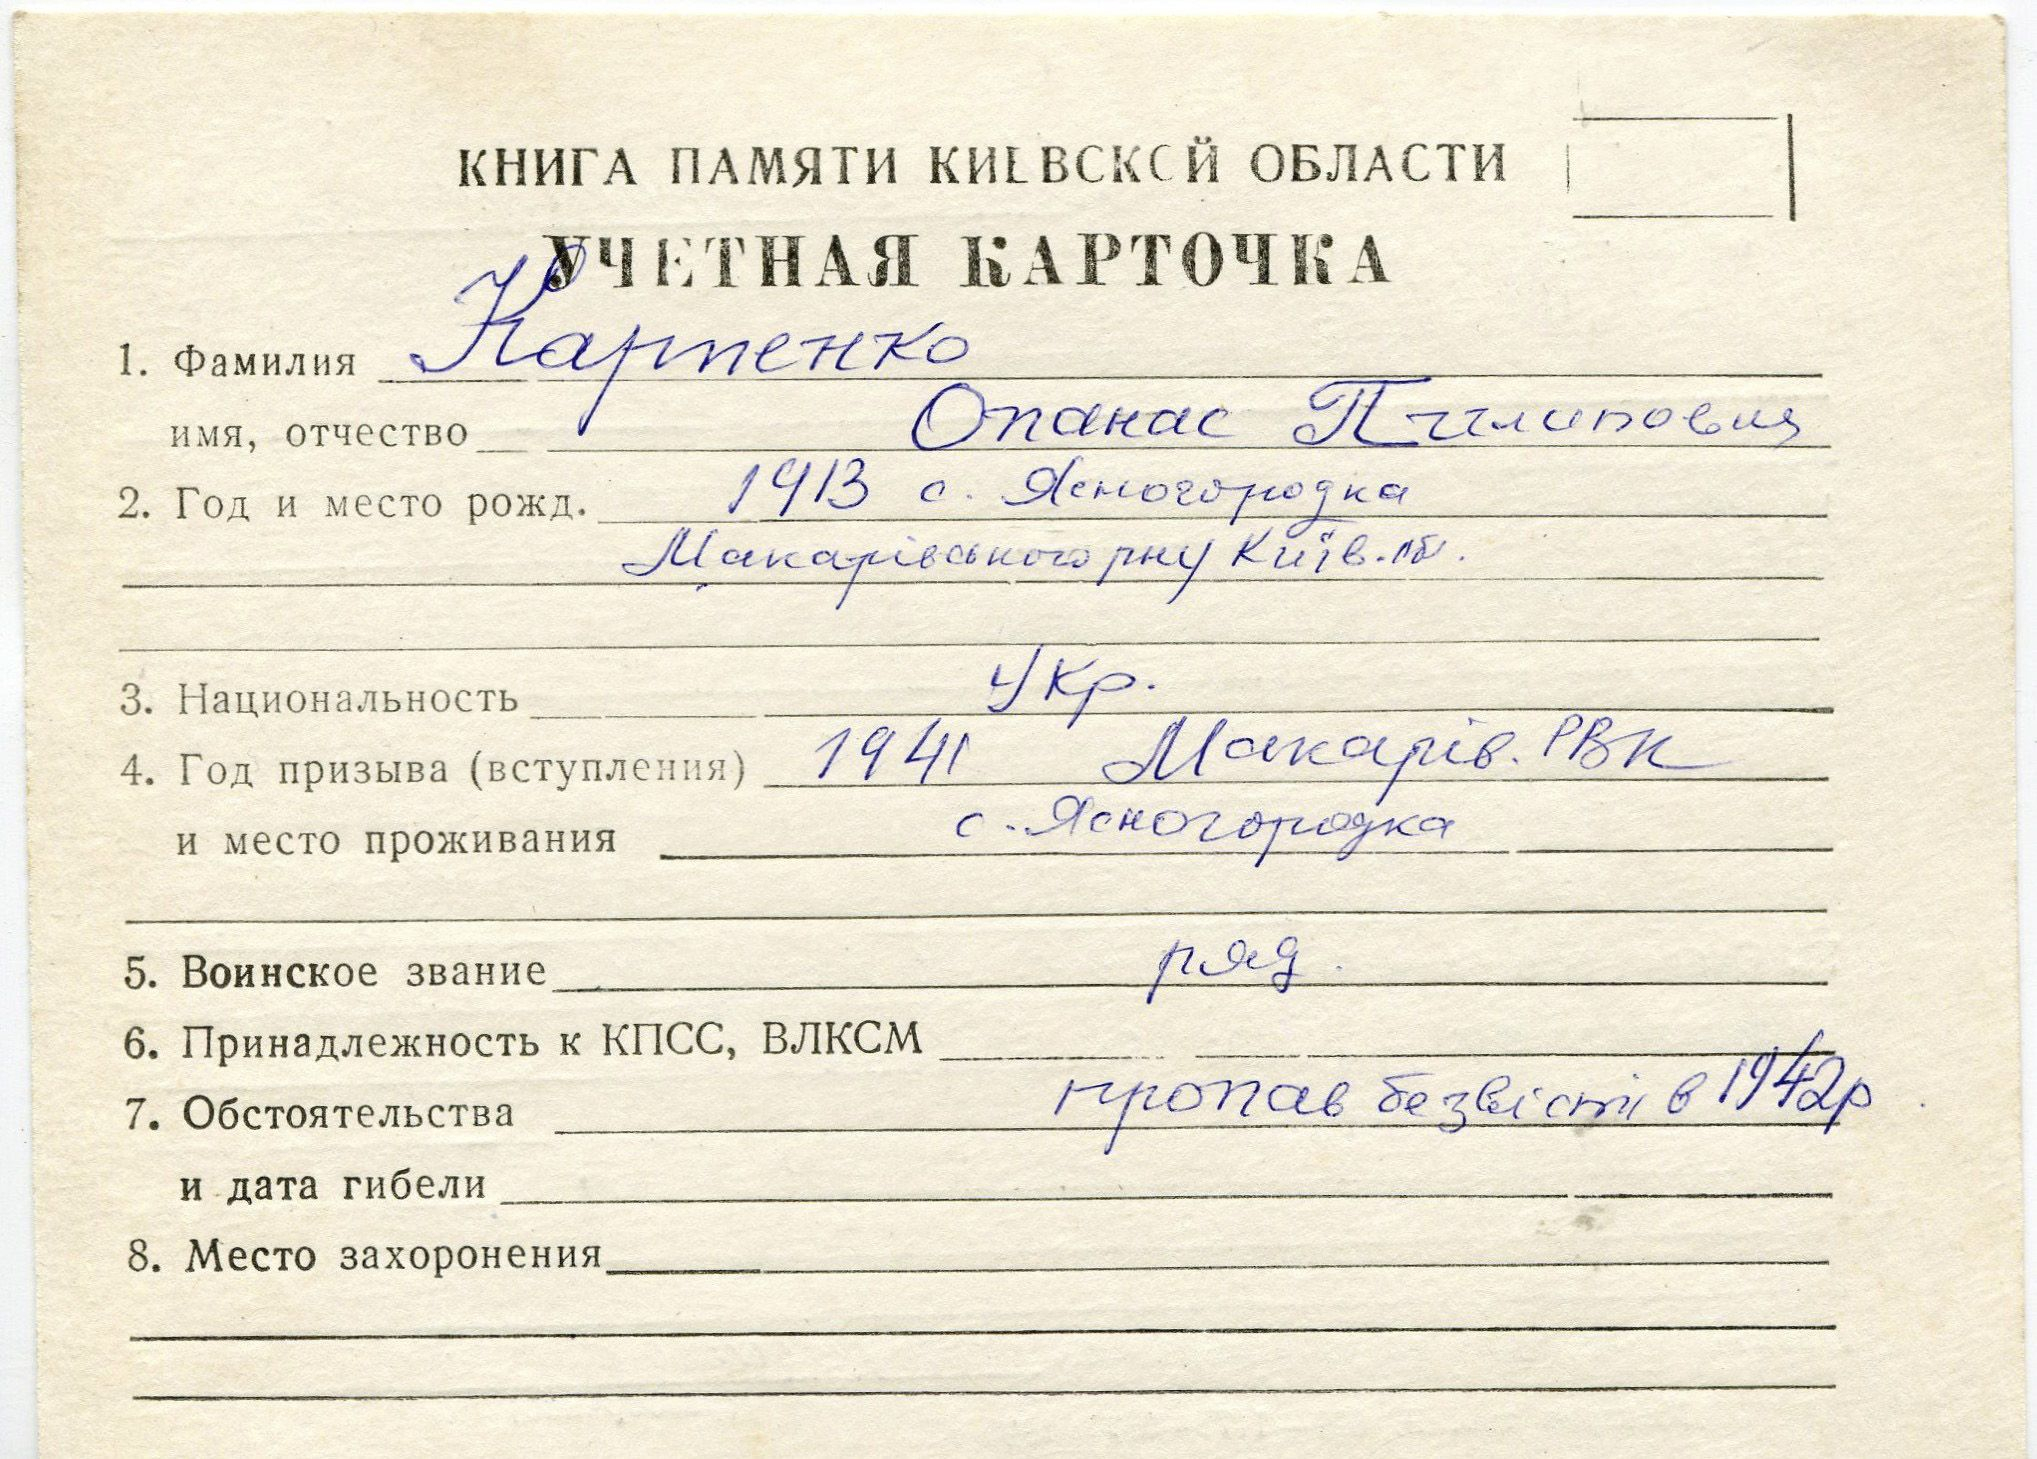 КНИГА ПАМЯТИ КИЕВСКОЙ ОБЛАСТИ
УЧЕТНАЯ КАРТОЧКА
1. Фамилия Карпенко
имя, отчество Опанас Пилипович
2. Год и место рожд. 1913 с. Ясногородка
Макарівського р-ну Київ. об.
3. Национальность Укр.
4. Год призыва (вступления) 1941 Макарів. РВК
и место проживания с. Ясногородка
5. Воинское звание ряд.
6. Принадлежность к КПСС, ВЛКСМ
7. Обстоятельства пропав безвісті в 1942р.
и дата гибели
8. Место захоронения